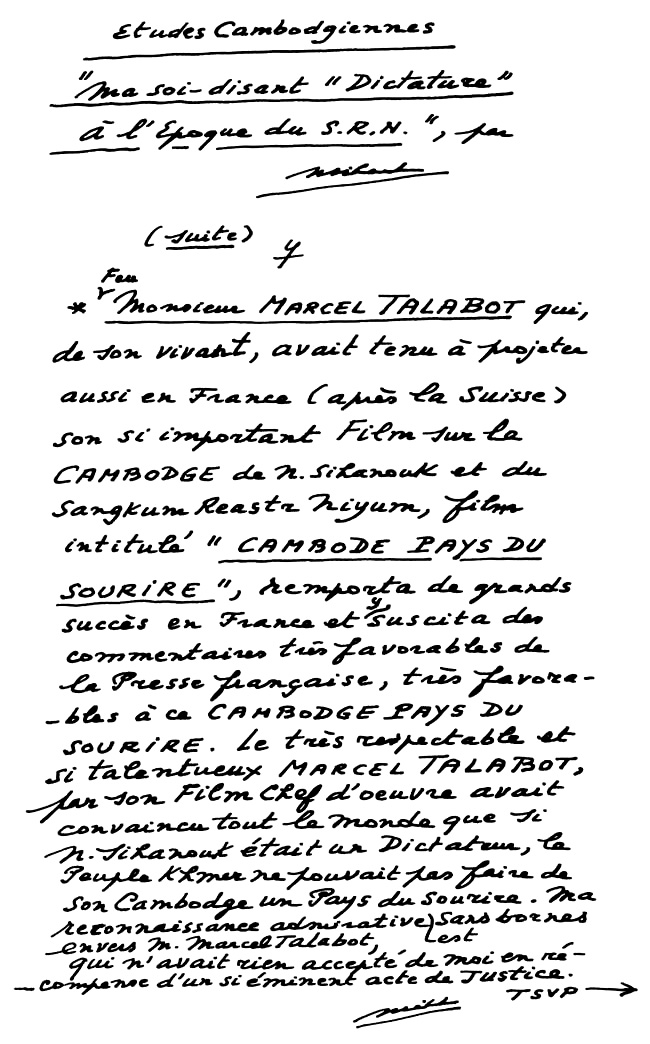 Etudes Cambodgiennes
"Ma soi-disant "Dictature"
à l'Epoque du S.R.N.", par
(suite)
Feu
* Monsieur MARCEL TALABOT qui,
de son vivant, avait tenu à projeter
aussi en France (après la Suisse)
son si important Film sur le
CAMBODGE de N. Sihanouk et du
Sangkum Reastr Niyum, film
intitulé "CAMBODE PAYS DU
SOURIRE", remporta de grands
succès en France et y suscita des
commentaires très favorables de
la Presse française, très favora-
-bles à ce CAMBODGE PAYS DU
SOURIRE. Le très respectable et
si talentueux MARCEL TALABOT,
par son Film Chef d'oeuvre avait
convaincu tout le monde que si
N. Sihanouk était un Dictateur, le
Peuple Khmer ne pouvait pas faire de
son Cambodge un Pays du Sourire. Ma
reconnaissance admirative est sans bornes
envers M. Marcel Talabot,
qui n'avait rien accepté de moi en ré-
-compense d'un si éminent acte de Justice.
TSVP →